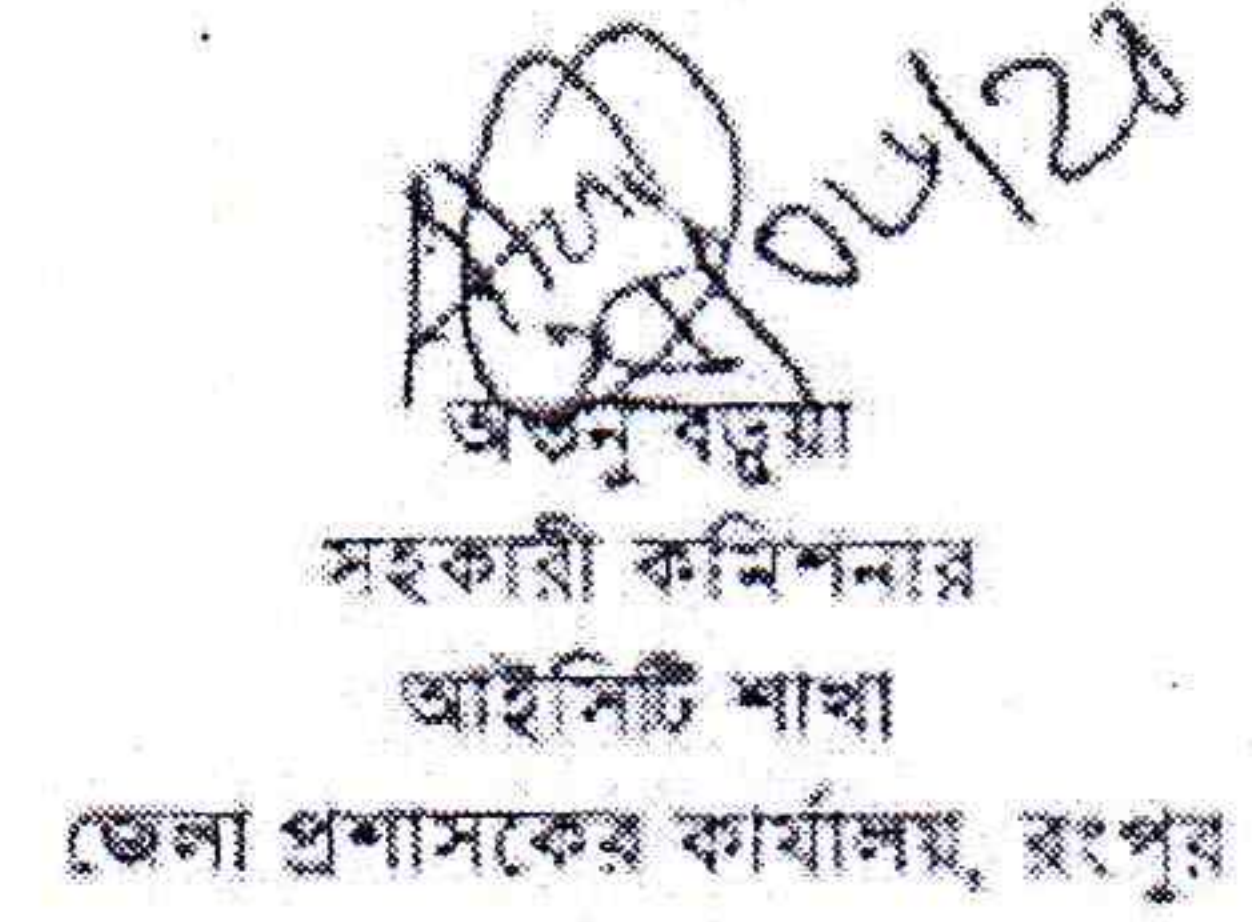 04/21
অতনু বড়ুয়া
সহকারী কমিশনার
আইসিটি শাখা
জেলা প্রশাসকের কার্যালয়, রংপুর